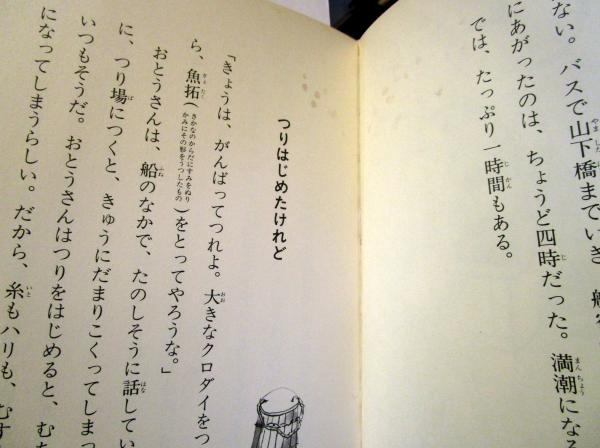 ない。バスで山下橋までいき、船
にあがったのは、ちょうど四時だった。満潮になる
では、たっぷり一時間もある。
つりはじめたけれど
「きょうは、がんばってつれよ。大きなクロダイをつ
ら、魚拓(さかなのからだにすみをぬりかみにその形をうつしたもの)をとってやろうな。」
おとうさんは、船のなかで、たのしそうに話してい
に、つり場につくと、きゅうにだまりこくってしまっ
いつもそうだ。おとうさんはつりをはじめると、むち
になってしまうらしい。だから、糸もハリも、むす